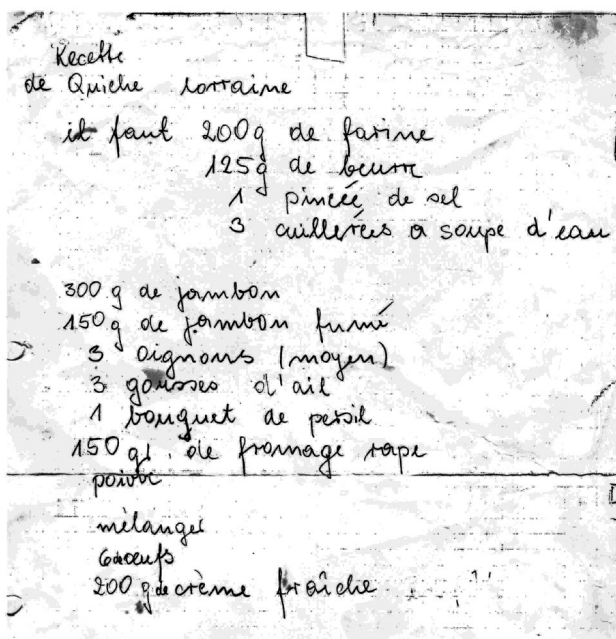 Recette
de Quiche lorraine
il faut 200g de farine
125g de beurre
1 pinceé de sel
3 cuillerées a soupe d'eau
300 g de jambon
150 g de jambon fumé
3 oignons (moyen)
3 gousses d'ail
1 bouquet de persil
150 gr. de fromage rape
poivre
mélanger
6 œufs
200 g de crème fraîche